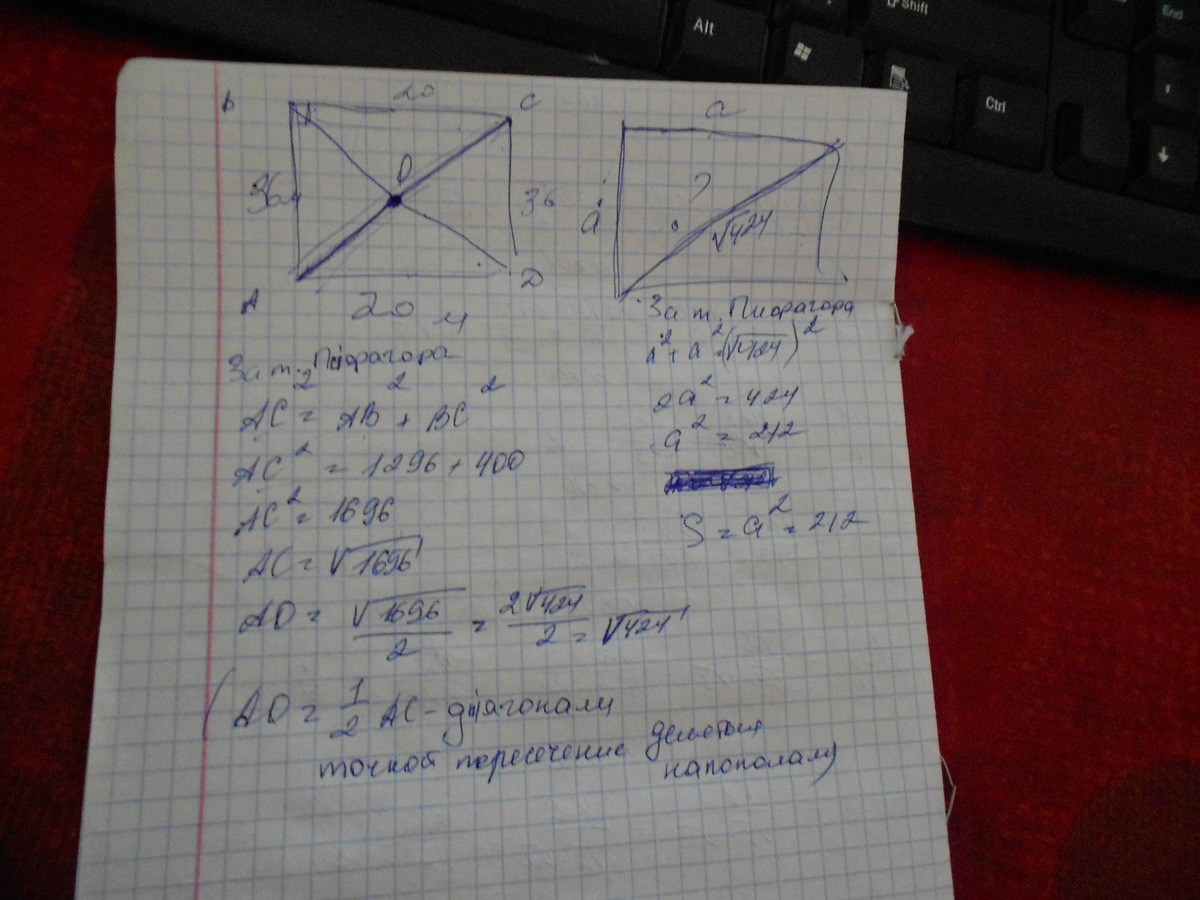 Alt
Shift
Ctrl
End
B
20
C
O
36
36
A
20 м
D
a
a
?
√424
За т. Піфагора
AC² = AB² + BC²
AC² = 1296 + 400
AC² = 1696
AC = √1696
AO = √1696/2 = 2√424/2 = √424
(AO = 1/2 AC - діагонали
точкой пересечение делятся
напополам)
За т. Пифрагора
a² + a² = (√424)²
2a² = 424
a² = 212
S = a² = 212